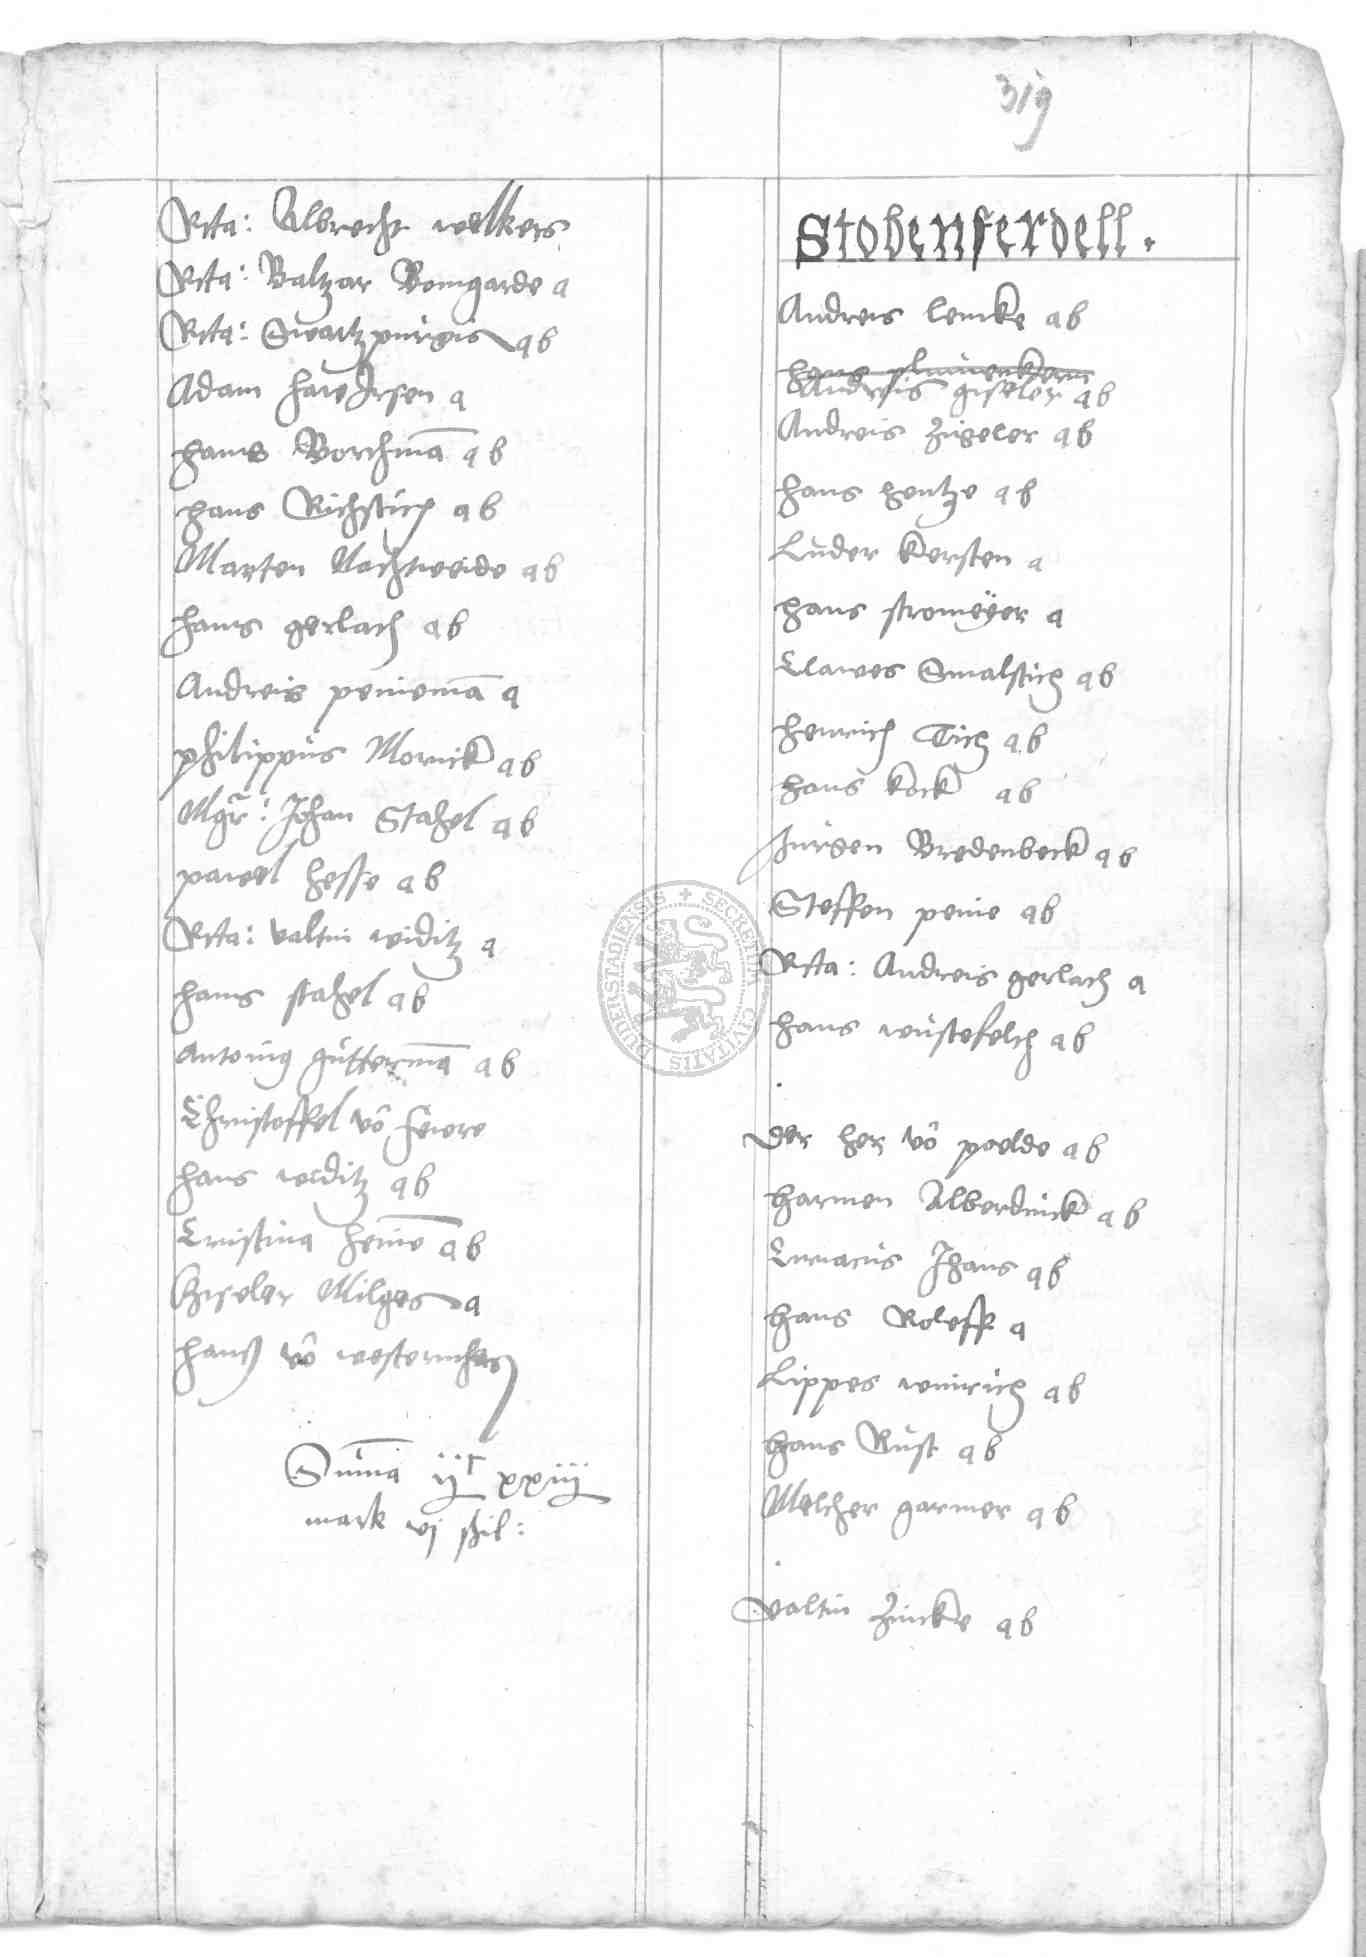 319
Rcta: Albrecht welkers
Rcta: Baltzar Bomgarde a
Rcta: Swartzpurgis a b
Adam
hans Borchmā a b
hans Richstich a b
Marten Nachtweide a b
hans gerlach a b
Andreis peniemā a
philippus Mornick a b
Mgr̄: Johan Stahel a b
pawel hesse a b
Rcta: valtin widitz a
hans stahel a b
Antonius guttermā a b
Christoffel vō
hans widitz a b
Cristina heīne a b
Giseler Milges a
hanß vō westernhaß
Sūma ijᶜ xxiij
mark vj shil:
Stobenferdell.
Andreis lencke a b
hans
Andreis giseler a b
Andreis Zigeler a b
hans hentze a b
Luder Kersten a
hans stromeÿer a
Clawes Smalstich a b
henrich Tich a b
hans kock a b
Jurgen Bredenbeck a b
Steffen penie a b
Rcta: Andreis gerlach a
hans wustefelch a b
der her vō poelde a b
harmen Alberdinck a b
Ciriacus Jhans a b
hans Roleff a
Lippes winrich a b
hans Rust a b
Melcher garmer a b
valtin Zincke a b
SECRETUM CIVITATIS DUDERSTADIENSIS